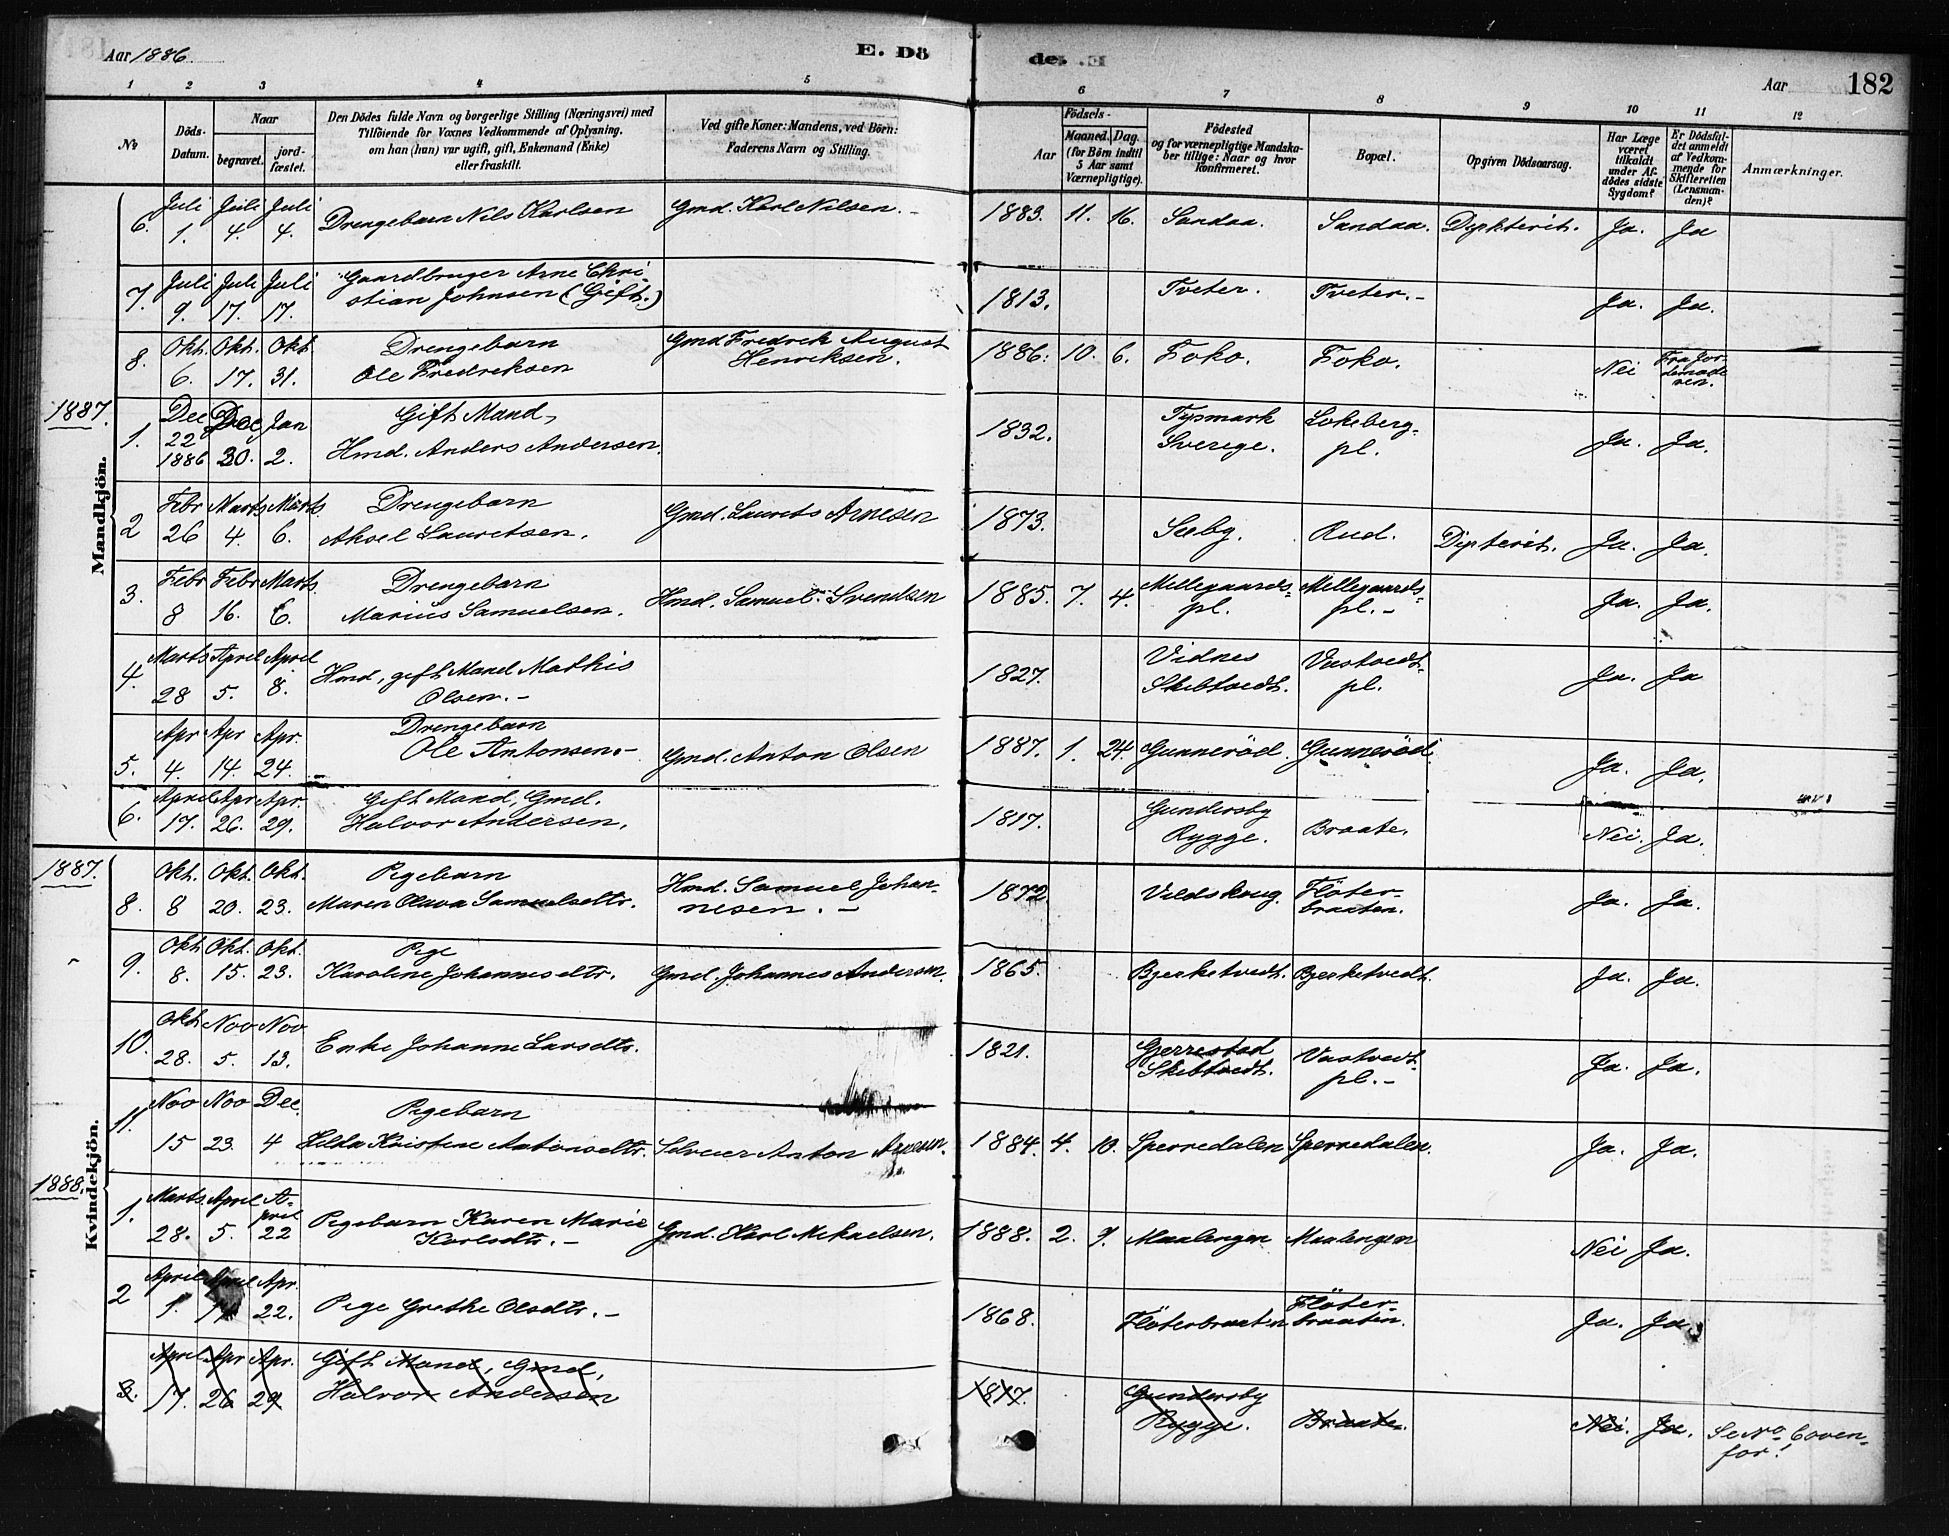 Aar 1886. E. Dö de. Aar 182
1 2 3 4 5 6 7 8 9 10 11 12
No Döds-Datum. Naar begravet. jordfæstet. Den Dödes fulde Navn og borgerlige Stilling (Næringsvei) med Tilföiende for Voxnes Vedkommende af Oplysning. om han (hun) var ugift, gift, Enkemand (Enke) eller fraskilt. Ved gifte Koner: Mandens, ved Börn: Faderens Navn og Stilling. Aar Födsels- Maaned. Dag. (for Börn indtil 5 Aar samt Værnepligtige). Födested og for værnepligtige Mandskaber tillige: Naar og hvor konfirmeret. Bopæl. Opgiven Dödsaarsag. Har Læge været tilkaldt under Afdödes sidste Sygdom? Er Dödsfaldet anmeldt af Vedkommende for Skifteretten (Lensmanden)? Anmærkninger.
Mandkjön.
6. Juli 1. Juli 4. Juli 4. Drengebarn Nils Karlsen Gmd. Karl Nilsen. - 1883. 11. 16. Sandaa. Sandaa. Diphterit. Ja. Ja
7. Juli 9. Juli 17. Juli 17. Gaardbruger Arne Christian Johnsen (Gift.) 1813. Tveter. Tveter. - Ja. Ja.
8. Okt. 6. Okt. 17. Okt 31. Drengebarn Ole Fredreksen Gmd Fredrek August Henriksen. 1886. 10. 6. Foko. Foko. Nei Fra Jordemoderen.
1887.
1. Dec 22 1886 Dec 30. Jan 2. Gift Mand, Hmd. Anders Andersen. 1832. Sverige. Lokeberg-pl. Ja. Ja.
2 Febr 26 Marts 4. Marts 6. Drengebarn Aksel Lauretsen. Gmd. Laurets Arnesen 1873. Sæby. Rud. Dipterit. Ja. Ja.
3. Febr 8 Febr 16. Marts 6. Drengebarn Marius Samuelsen. Hmd. Samuel Svendsen 1885. 7. 4. Millegaards-pl. Millegaards-pl. - Ja. Ja.
4. Marts 28 April 5. April 8. Hmd, gift Mand Mathis Olsen. - 1827. Vidnes Skibtvedt. Vastvedt-pl. Ja. Ja
5. Apr 4. Apr 14. Apr. 24. Drengebarn Ole Antonsen. - Gmd. Anton Olsen 1887. 1. 24. Gunneröd. Gunneröd. Ja. Ja.
6. April 17. Apr 26. Apr. 29. Gift Mand, Gmd. Halvor Andersen. 1817. Gundersby Rygge. Braate. Nei. Ja.
Kvindekjön.
1887.
8. Okt. 8 Okt. 20. Okt. 23. Pigebarn Maren Olava Samuelsdtr. Hmd. Samuel Johannesen. - 1872 Vildskoug. Flöterbraaten. Ja. Ja.
9. Okt 8. Okt. 15. Okt. 23. Pige Karoline Johannesdtr. Gmd. Johannes Andersen. 1865. Bjerketvedt. Bjerketvedt. Ja. Ja.
10. Okt 28. Nov 5. Nov 13. Enke Johanne Larsdtr. 1821. Gjerrestad Skibtvedt. Vastvedt-pl. - Ja. Ja.
11. Nov 15 Nov 23. Dec. 4 Pigebarn Hilda Kristine Antonsdtr. Selveier Anton Arnesen. 1884. 4. 10. Sperredalen Sperredalen. Ja. Ja.
1888.
1. Marts 28. April 5. April 22 Pigebarn Karen Marie Karlsdtr. - Gmd. Karl Mikaelsen. 1888. 2. 9. Maalengen Maalengen Nei Ja.
2 April 1. April Apr. 22. Pige Grethe Olsdtr. - 1868. Flöterbraaten Flöterbraaten. Ja. Ja.
3. April 17. Apr 26 Apr. 29 Gift Mand, Gmd, Halvor Andersen 1817. Gundersby Rygge. Braate. Nei. Ja. Se No 6 ovenfor!